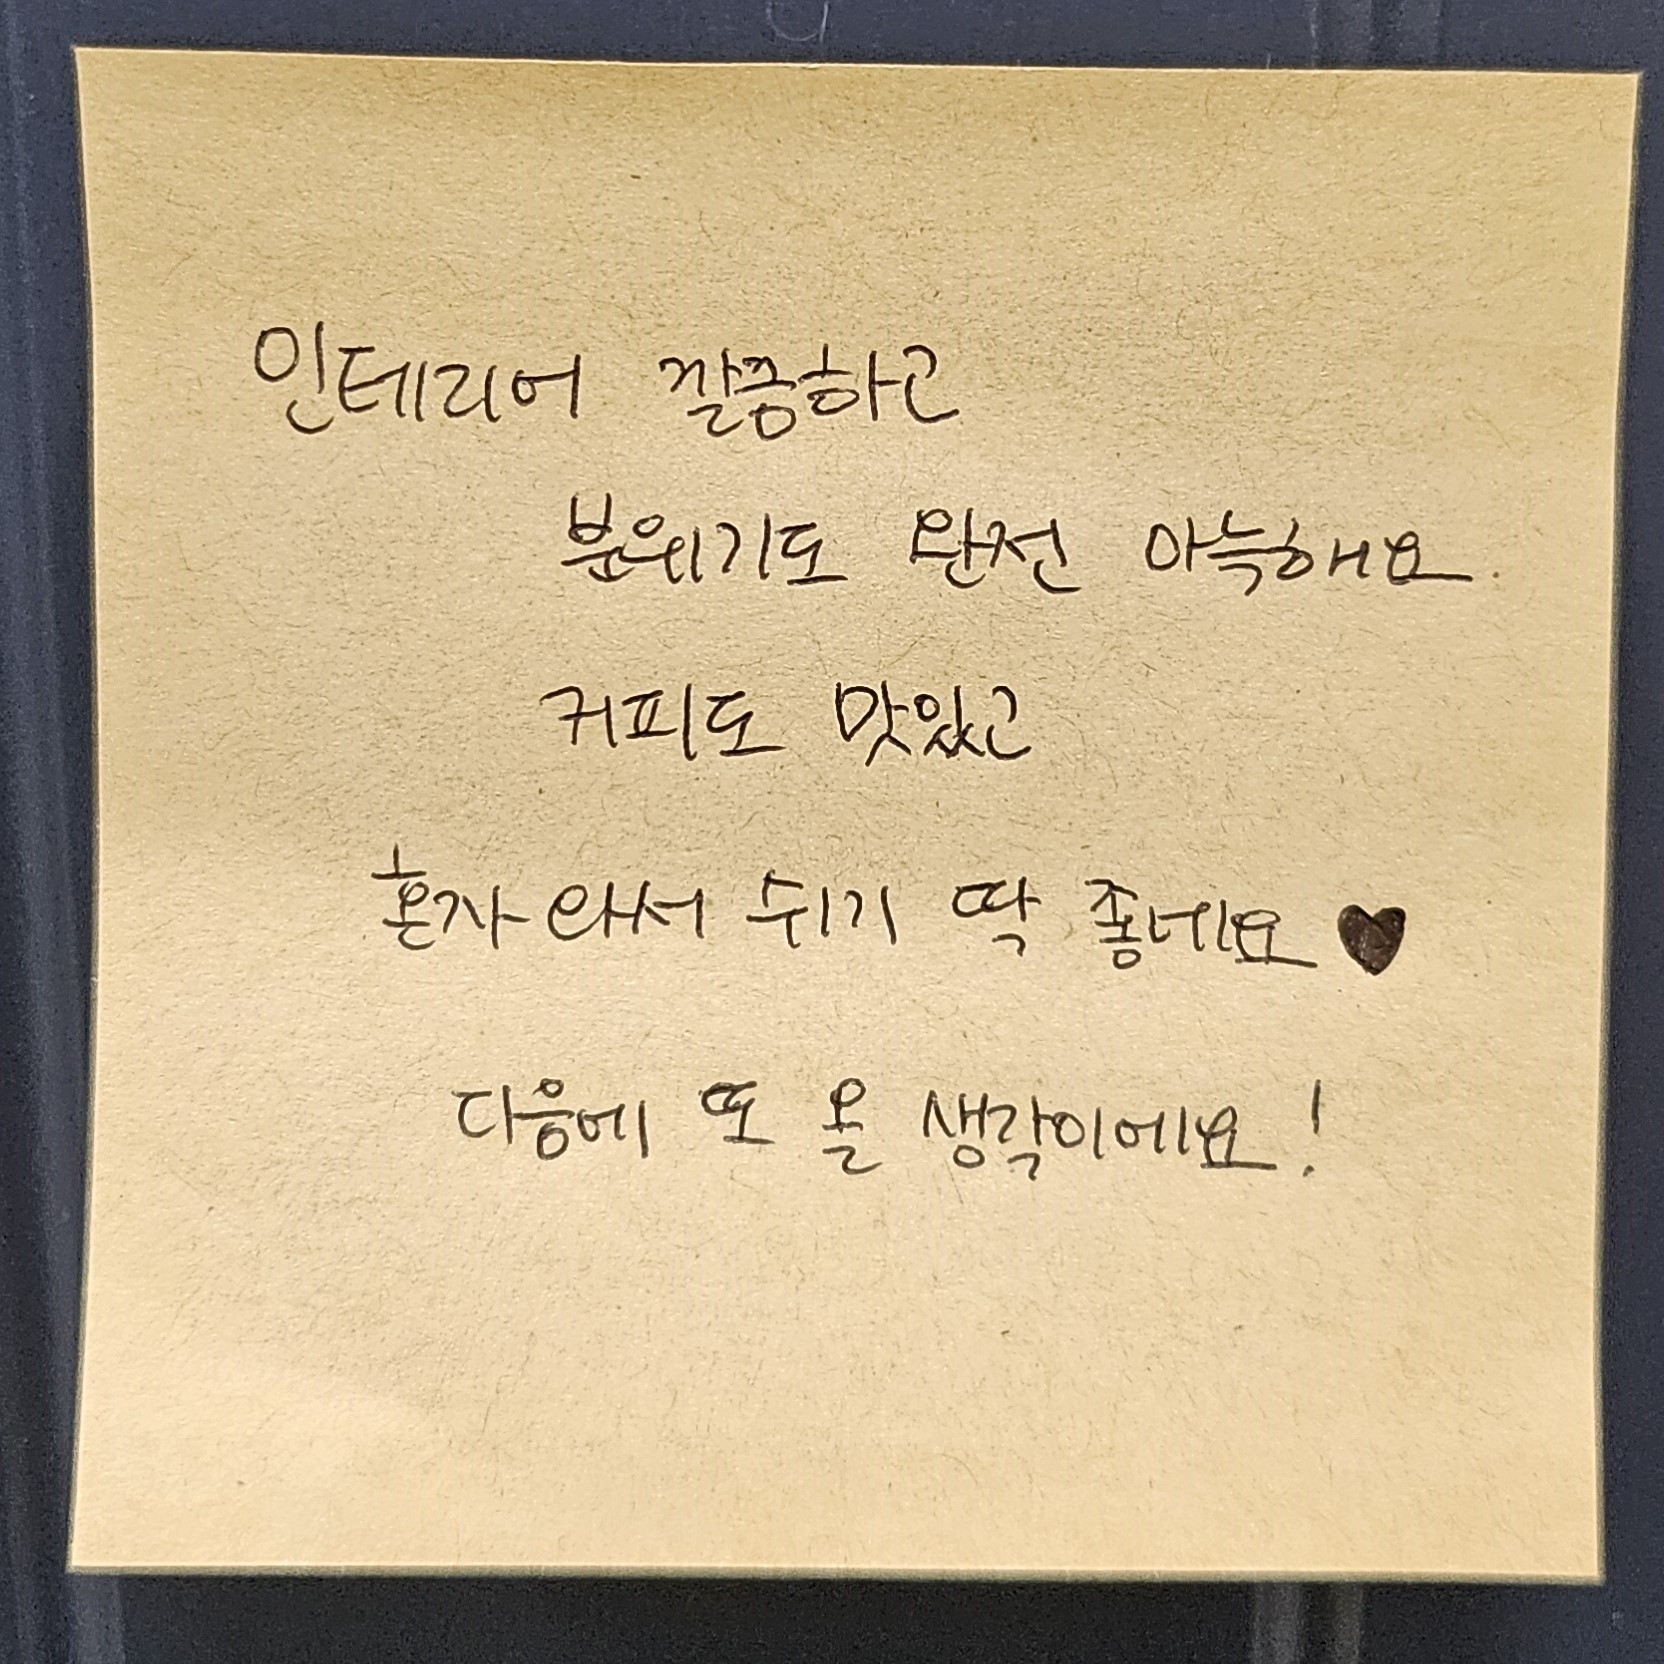 인테리어 깔끔하고
분위기도 완전 아늑해요.
커피도 맛있고
혼자 와서 쉬기 딱 좋네요♥
다음에 또 올 생각이에요!